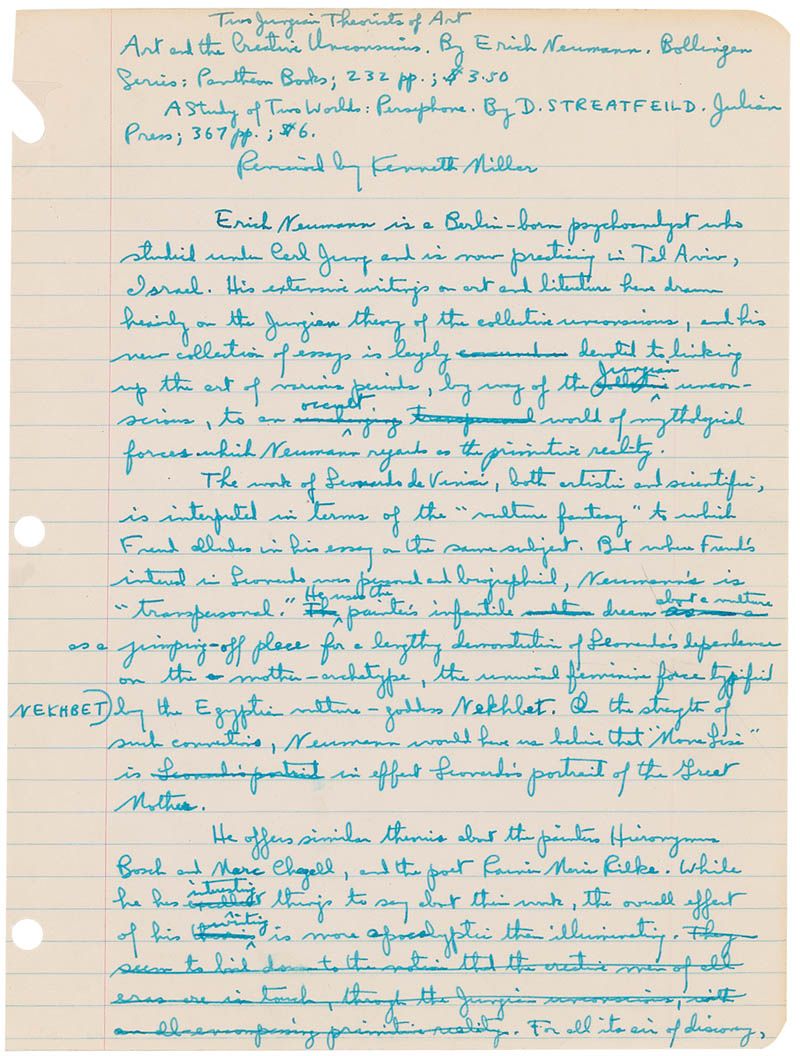 Two Jungian Theorists of Art
Art and the Creative Unconscious. By Erich Neumann. Bollingen
Series: Pantheon Books; 232 pp.; $3.50
A Study of Two Worlds: Persephone. By D. STREATFEILD. Julian
Press; 367 pp.; $6.
Reviewed by Kenneth Miller
Erich Neumann is a Berlin-born psychoanalyst who
studied under Carl Jung and is now practising in Tel Aviv,
Israel. His extensive writings on art and literature have drawn
heavily on the Jungian theory of the collective unconscious, and his
new collection of essays is largely devoted to linking
up the art of various periods, by way of the Jungian uncon-
scious, to an occult transpersonal world of mythological
forces which Neumann regards as the primitive reality.
The work of Leonardo da Vinci, both artistic and scientific,
is interpreted in terms of the "vulture fantasy" to which
Freud alludes in his essay on the same subject. But where Freud's
interest in Leonardo was personal and biographical, Neumann's is
"transpersonal." The He uses the painter's infantile dream about a vulture as a
as a jumping-off place for a lengthy demonstration of Leonardo's dependence
on the mother-archetype, the universal feminine force typified
NEKHBET) by the Egyptian vulture-goddess Nekhbet. On the strength of
such connections, Neumann would have us believe that "Mona Lisa"
is Leonardo's portrait in effect Leonardo's portrait of the Great
Mother.
He offers similar theories about the painters Hieronymus
Bosch and Marc Chagall, and the poet Rainer Maria Rilke. While
he has excellent interesting things to say about their work, the overall effect
of his writing is more apocalyptic than illuminating. They
seem to boil down to the notion that the creative men of all
eras are in touch, through the Jungian unconscious, with
an all-encompassing primitive reality. For all its air of discovery,